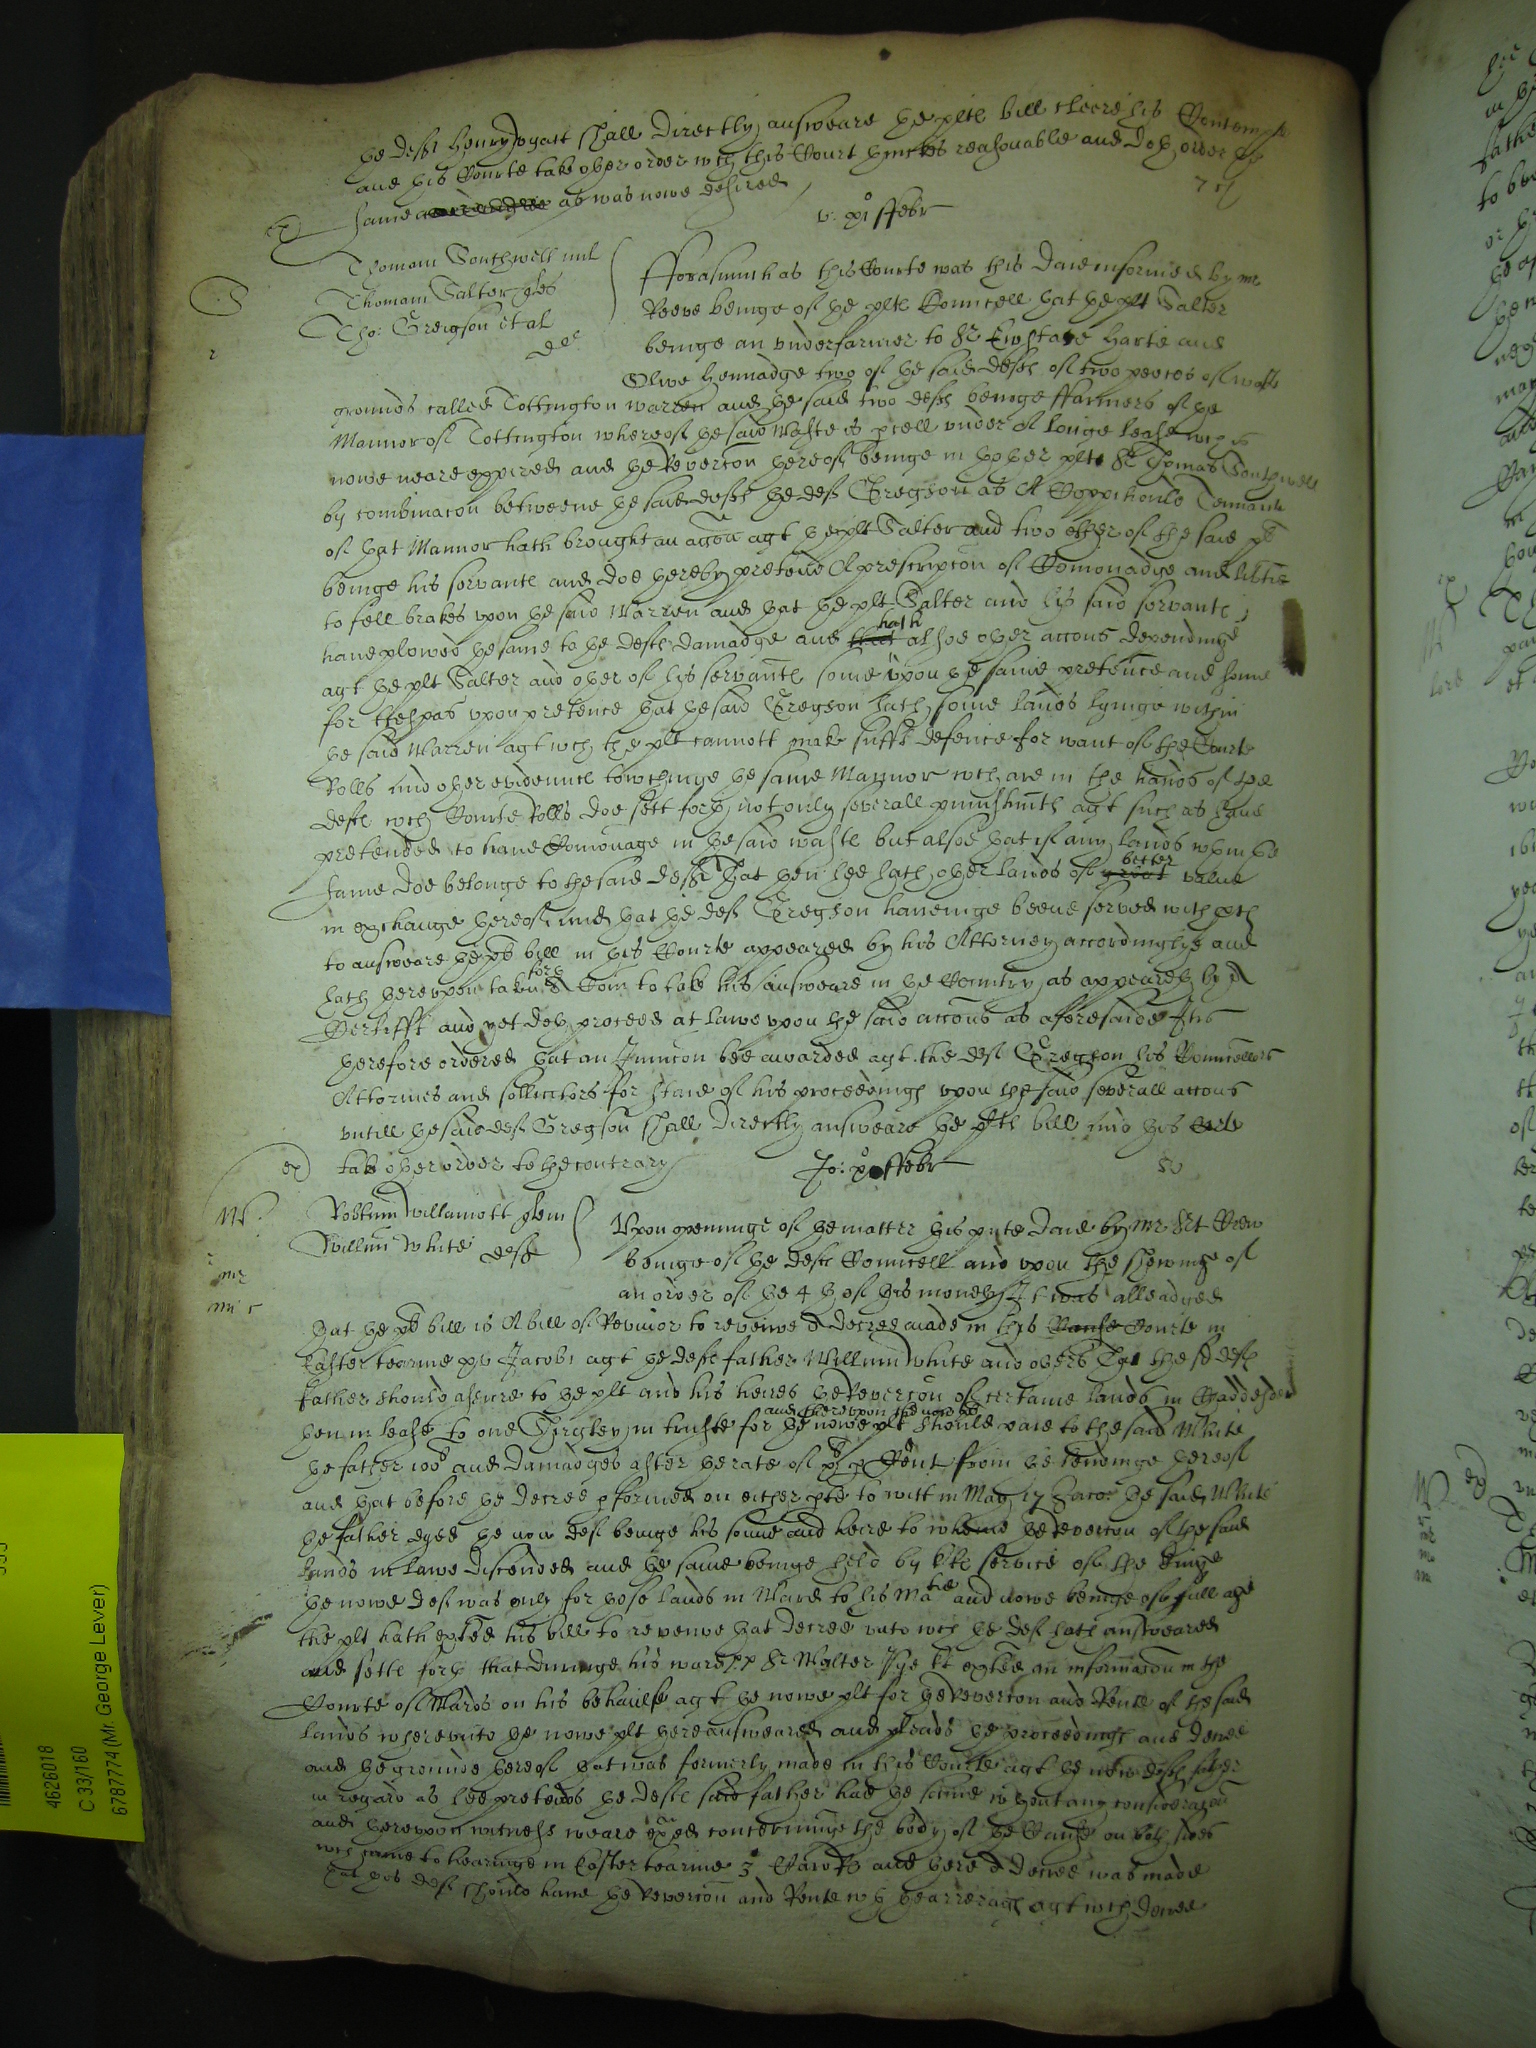 the deft Henry Jogatt shall directly answeare the pltes bill cleere his Contempte
and this Courte take other order wch this Court thinkes reasonable and doth order the
same as was nowe desired
v: xi° ffebr
Thomam Southwell mil
Thomam Salter ples
Tho: Gregson et al
des
fforasmuch as this Courte was this daie informed by mr
Reeve beinge of the pltes Councell that the plt Salter
beinge an underfarmer to Sr Eustace Harte and
Olive Hennadge two of the said defts of two peeces of waste
grounds called Tottington warren and the said two defts beinge ffarmers of the
Mannor of Tottington whereof the said Waste is pcell under A longe lease wch is
nowe neare expired and the Revercon thereof beinge in thother plt Sr Thomas Southwell
by combinacon betweene the said defts the deft Gregson as A Coppihould Tennante
of that Mannor hath brought an accon agt the plt Salter and two other of the said pts
beinge his servants and doe thereby pretend A prescripcon of Comonadge and libtie
to fell brakes upon the said Warren and that the plt Salter and his said servants
have plowed the same to the defts damadge and hath alsoe other accons dependinge
agt the plt Salter and other of his servants some upon the same pretence and some
for trespas upon pretence that the said Gregson hath some lands lyinge within
the said Warren agt wch the plt cannott make sufft defence for want of the Courte
Rolls and other evidences towchinge the same Mannor wch are in the hands of the
defts wch Courte Rolls doe sett forth not only severall punishmts agt such as have
pretended to have Comonage in the said waste but alsoe that if any lands wthin the
same doe belonge to the said deft That then hee hath other lands of better value
in exchange thereof And that the deft Gregson haveinge beene served with pces
to answeare the pts bill in this Courte appeared by his Attorney accordinglye and
hath thereupon taken forth A Com to take his answeare in the Countrey as appeareth by A
Certifft and yet doth proceed at lawe upon the said accons as afforesaide It is
therefore ordered that an Iniuncon bee awarded agt the deft Gregson his Councellors
Attornies and sollicitors for staie of his proceedings upon the said severall accons
untill the said deft Gregson shall directly answeare the pltes bill and this Courte
take other order to the contrary
Jo: xi° ffebr
Robtum Willamott plem
Willm White deft
Upon openinge of the matter this pnte daie by mr Sct Crew
beinge of the defts Councell and upon the shewinge of
an order of the 4th of this moneth It was alleadged
that the pts bill is A bill of Revivor to revive a decree made in this Courte in
Easter tearme xv Jacobi agt the defts father William White and others That the sd defts
father should assure to the plt and his heires the Revercon of certaine lands in
then in lease to one in truste for the nowe plt should paie to the said White
and thereupon the now plt
the father 100£ and damadges after the rate of x£ p Cent from the tendringe thereof
and that before the decree pformed on either pte to witt in May 17 Jacob: the said White
the father dyed the now deft beinge his sonne and heire to whome the revercon of the said
lands in lawe discended and the same beinge held by kts service of the kinge
the nowe deft was only for those lands in Ward to his Matie and nowe beinge of full age
the plt hath exhted his bill to revive that decree unto wch the deft hath answeared
and setts forth that duringe his wardsp Sr Walter Pye kt exhted an informacon in the
Courte of Wards on his behaulfe agt the nowe plt for the Revercon and Rente of the said
lands whereunto the nowe plt there answeared and pleads the proceedings and decree
and the grounde thereof that was formerly made in this Courte agt the now defts father
in regard as hee pretends the defts said father had the same without any consideracon
and thereupon witness weare exed concerninge the body of the Cause on both sides
wch came to hearinge in Easter tearme 3° Caroli and there a decree was made
that this deft should have the Revercon and Rente wth the arreragies agt wch decree
4626018
C 33/160
6787774 (Mr. George Lever)